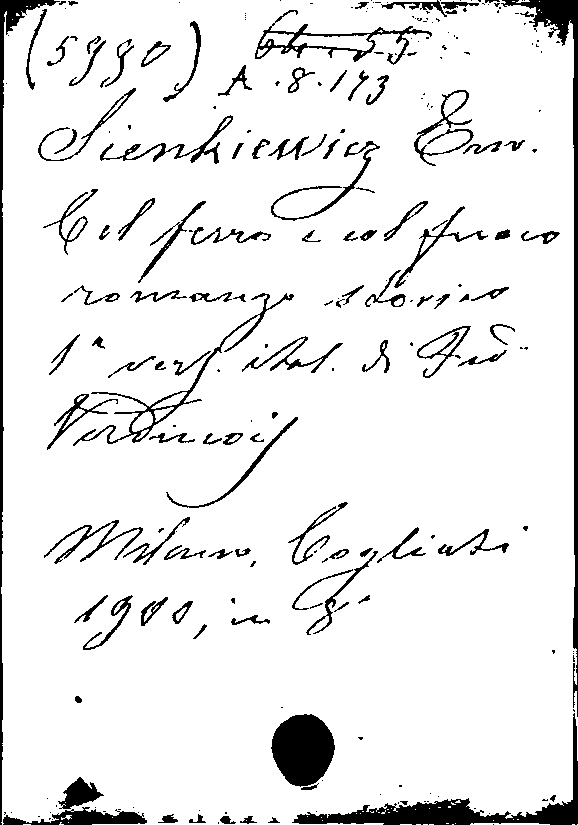 (5990)
A. 8. 173
Sienkiewicz Enr.
Col ferro e col fuoco
romanzo storico
1ª vers. ital. di Fed.
Verdinois
Milano, Cogliati
1900, in 8°